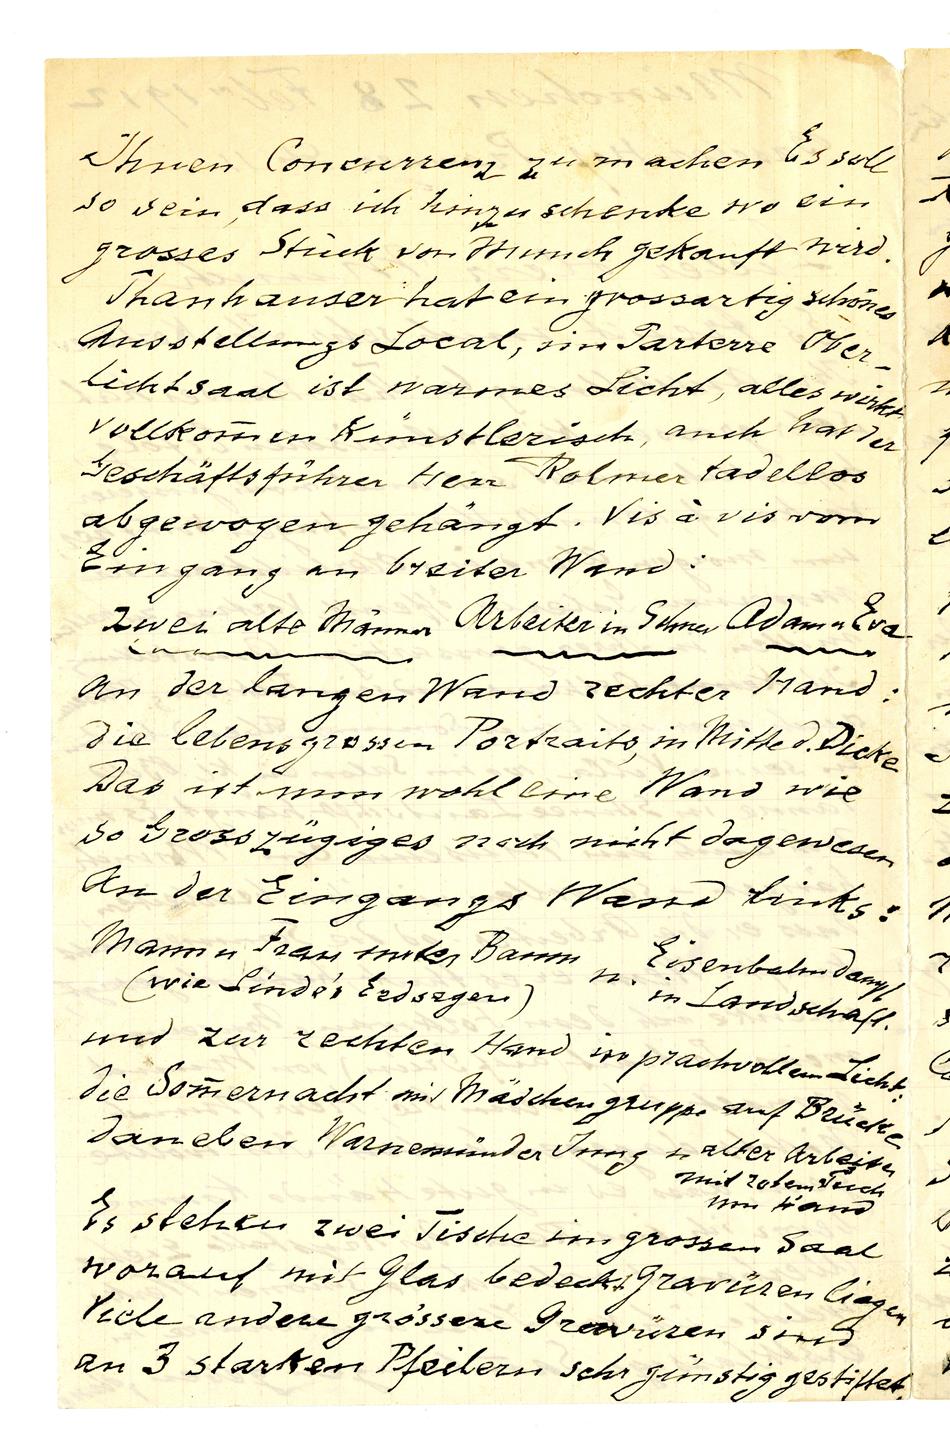 Ihnen Concurrenz zu machen Es soll
so sein, dass ich hinzu schenke wo ein
grosses Stück von Munch gekauft wird.
Thanhauser hat ein grossartig schönes
Ausstellungs Local, im Parterre Ober-
lichtsaal ist warmes Licht, alles wirkt
vollkom̄en künstlerisch, auch hat der
Geschäftsführer Herr Rolmer tadellos
abgewogen gehängt. Vis à vis vom
Eingang an breiter Wand:
Zwei alte Männer Arbeiter in Schnee Adam u Eva
An der langen Wand rechter Hand:
die lebensgrossen Portraits, in Mitte d. Dicke
Das ist nun wohl eine Wand wie
so Grosszügiges noch nicht dagewesen
An der Eingangs Wand links:
Mann u Frau unter Baum u. Eisenbahndampf
(wie Linde's Erdsegen) in Landschaft.
und zur rechten Hand in prachvollem Licht:
die Som̄ernacht mit Mädchengruppe auf Brücke
daneben Warnemünder Jung u alter Arbeiter
mit rotem Tuch
um Hand
Es stehen zwei Tische im grossen Saal
worauf mit Glas bedeckt Gravüren liegen
Viele andere grössere Gravüren sind
an 3 starken Pfeilern sehr günstig gestiftet.
München 28 Febr 1912